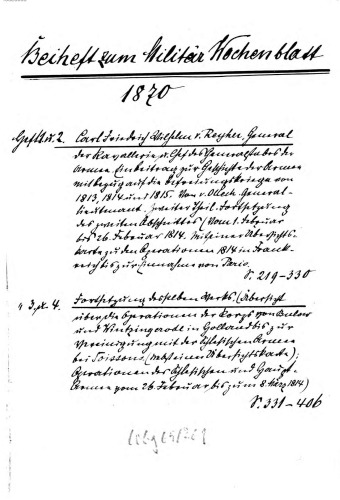 Beiheft zum Militär Wochenblatt
1870
Heft 1 u. 2. Carl Friedrich Wilhelm v. Reyher, General
der Kavallerie u. Chef des Generalstabes der
Armee. Ein Beitrag zur Geschichte der Armee
mit bezug auf die Befreiungskriege von
1813, 1814 und 1815. Von v. Ollech, General-
lieutenant. Zweiter Theil. Fortsetzung
des zweiten Abschnittes (Vom 1. Februar
bis 26. Februar 1814. Mit einer Übersichts-
karte zu den Operationen 1814 in Frank-
reich bis zur Einnahme von Paris.
S. 219-330
" 3. u. 4. Fortsetzung desselben Werks. (Übersicht
über die Operationen der Korps von Bulow
und Wintzingerode in Holland bis zur
Vereinigung mit der Schlesischen Armee
bei Soissons (nebst einer Übersichtskarte);
Operationen der Schlesischen und Haupt-
Armee vom 26. Februar bis zum 8. März 1814)
S. 331-406